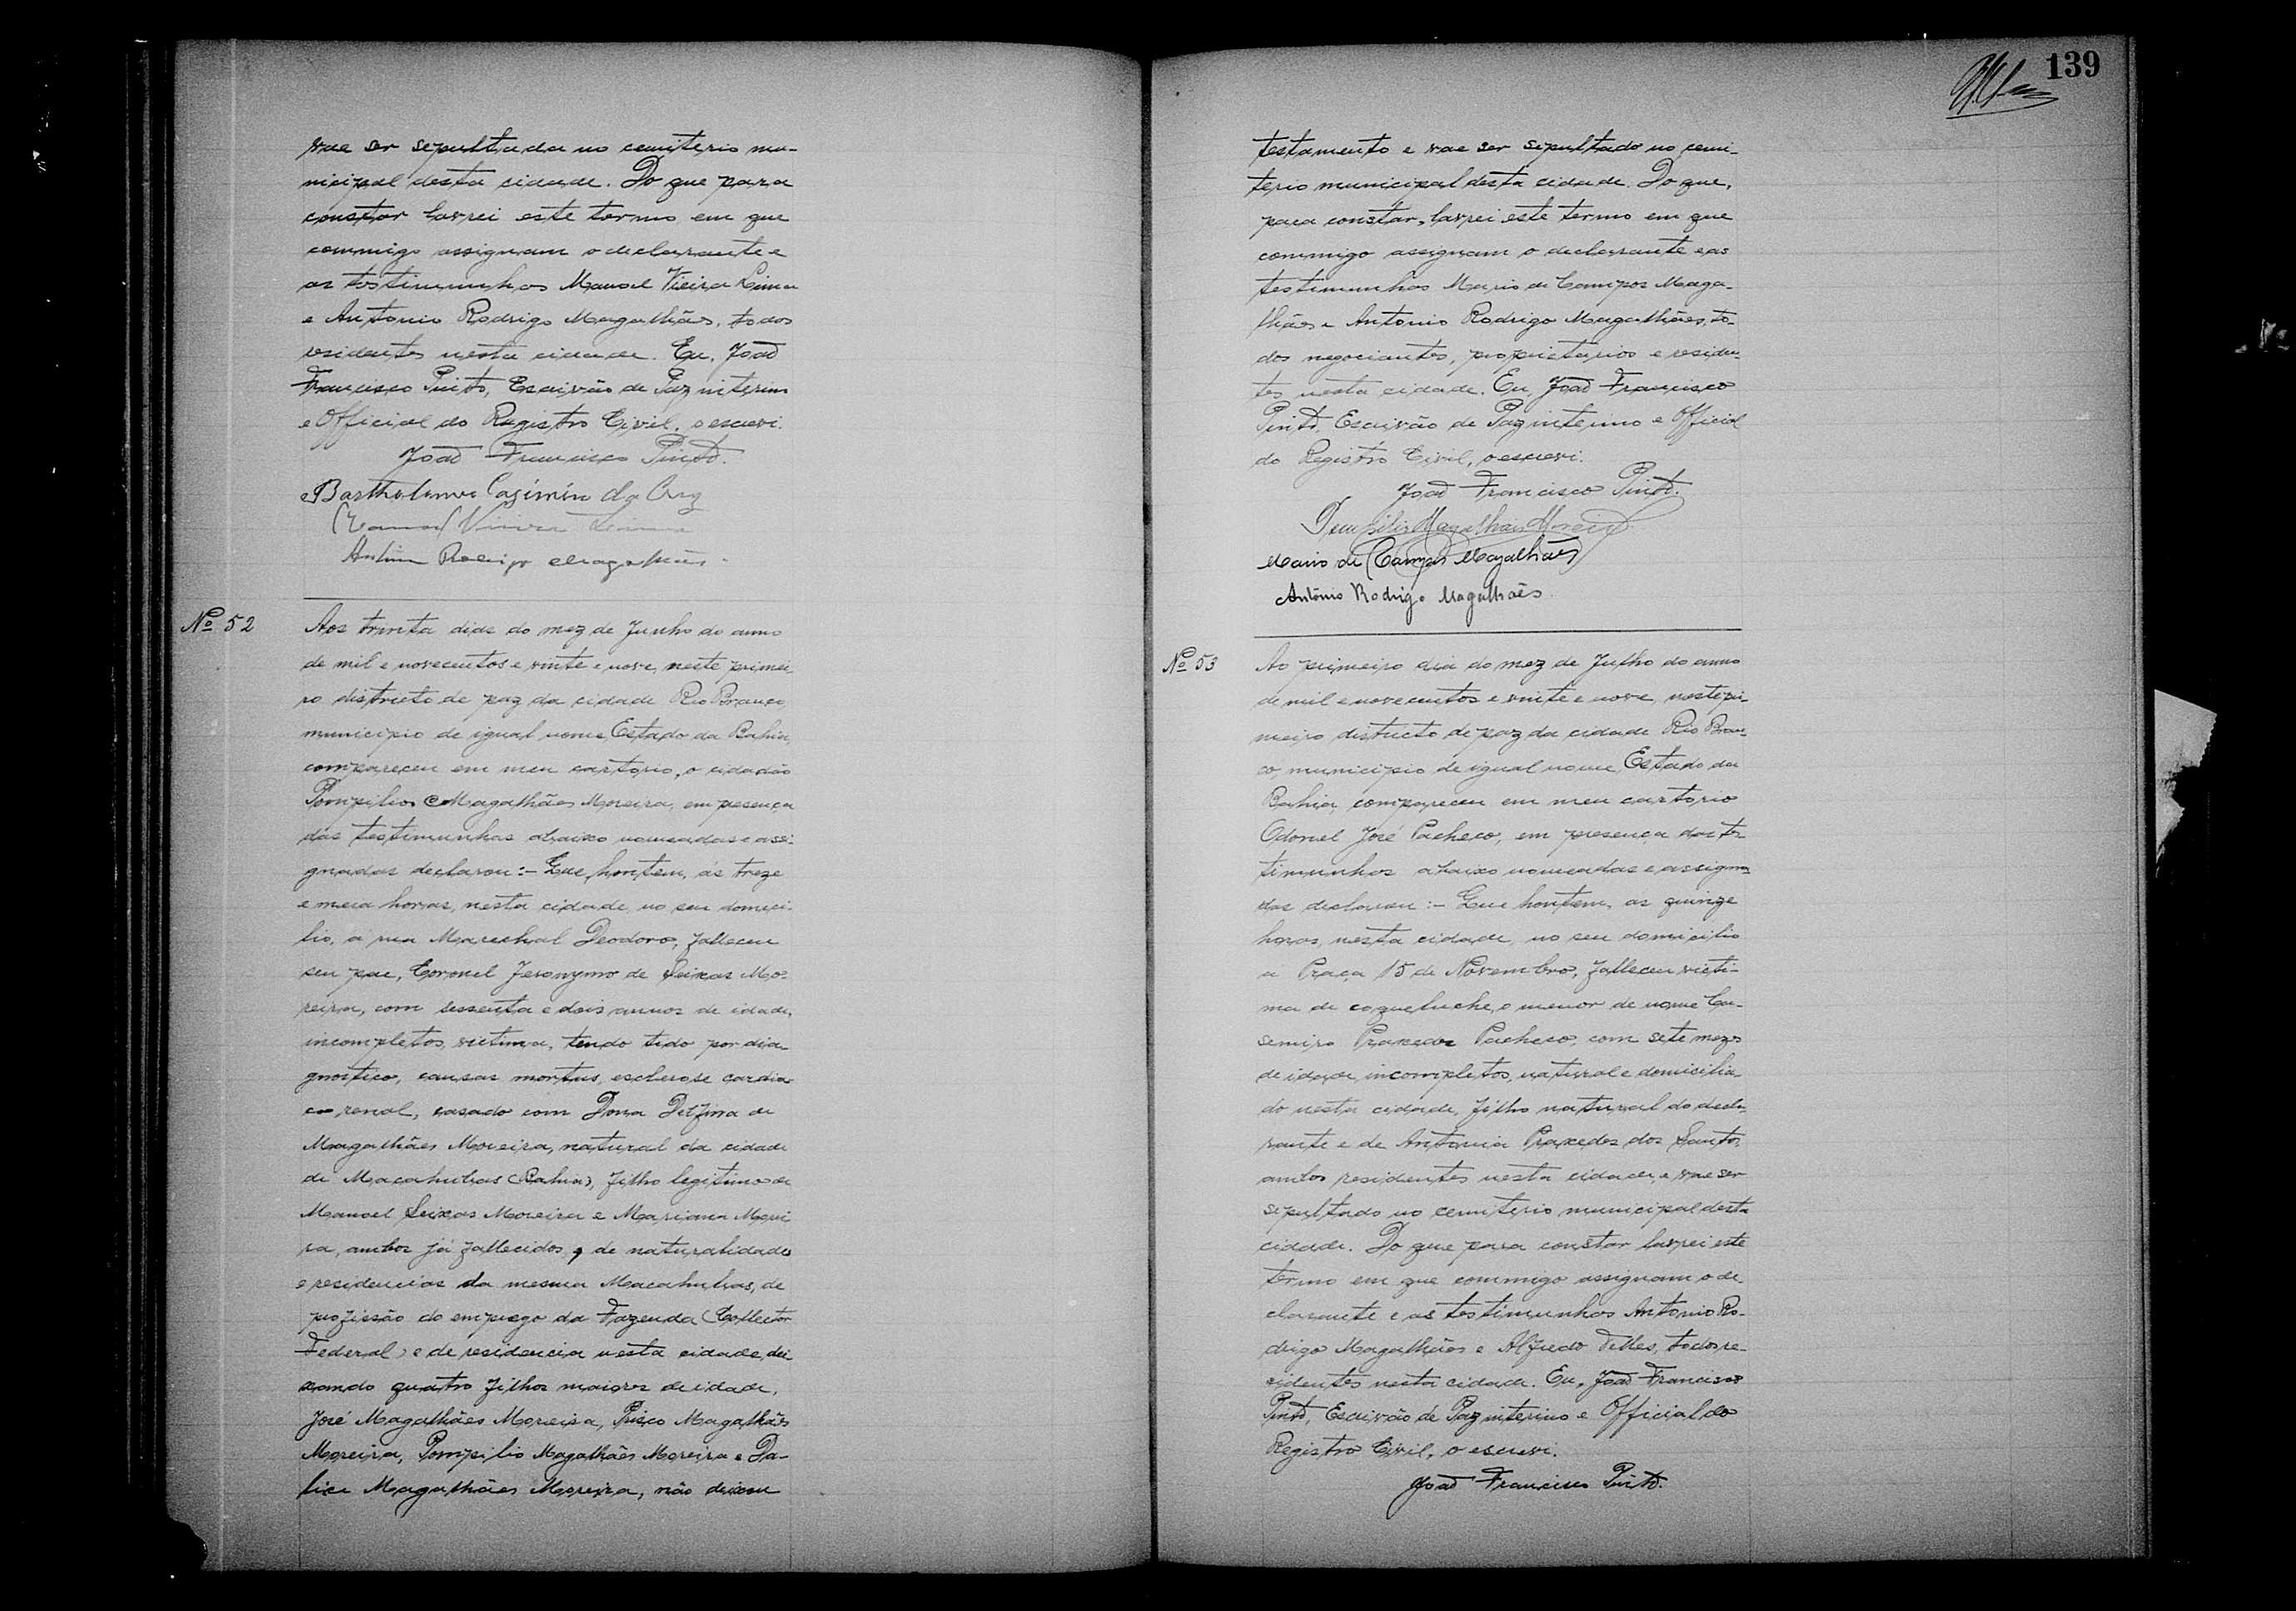 vae ser sepultada no cemiterio mu-
nicipal desta cidade. Do que para
constar lavrei este termo em que
commigo assignam o declarante e
as testimunhas Manoel Vieira Lima
e Antonio Rodrigo Magalhães, todos
residentes nesta cidade. Eu, João
Francisco Pinto, Escrivão de Paz interino
e Official do Registro Civil, o escrevi.
João Francisco Pinto.
Bartholomeu Casimiro da Cruz
Manoel Vieira Lima
Antonio Rodrigo Magalhães
Nº 52
Aos trinta dias do mez de Junho do anno
de mil e novecentos e vinte e nove, neste primei-
ro districto de paz da cidade Rio Branco,
municipio de igual nome Estado da Bahia,
compareceu em meu cartorio, o cidadão
Pompilio Magalhães Moreira, em presença
das testimunhas abaixo nomeadas e assi-
gnadas declarou:- Que hontem, ás treze
e meia horas, nesta cidade no seu domici-
lio, á rua Marechal Deodoro, falleceu
seu pae, Coronel Jeronymo de Seixas Mo-
reira, com sessenta e dois annos de idade,
incompletos, victima, tendo tido por dia-
gnostico, causas mortus, esclerose cardia-
co renal, casado com Dona Delfina de
Magalhães Moreira, natural da cidade
de Macahubas (Bahia), filho legitimo de
Manoel Seixas Moreira e Mariana Morei
ra, ambos já fallecidos, de naturalidades
e residencias da mesma Macahubas, de
profissão do emprego da Fazenda (Collector
Federal) e de residencia nesta cidade, dei-
xando quatro filhos maiores de idade,
José Magalhães Moreira, Prisco Magalhães
Moreira, Pompilio Magalhães Moreira e Da-
lice Magalhães Moreira, não deixou
139
testamento e vae ser sepultado no cemi-
terio municipal desta cidade. Do que,
para constar, lavrei este termo em que
commigo assignam o declarante e as
testimunhas Mario de Campos Maga-
lhães e Antonio Rodrigo Magalhães, to-
dos negociantes, proprietarios e residen-
tes nesta cidade. Eu, João Francisco
Pinto, Escrivão de Paz interino e Official
do Registro Civil, o escrevi.
João Francisco Pinto.
Pompilio Magalhães Moreira
Mario de Campos Magalhães
Antônio Rodrigo Magalhães
Nº 53
Ao primeiro dia do mez de Julho do anno
de mil e novecentos e vinte e nove, neste pri-
meiro districto de paz da cidade Rio Bran-
co, municipio de igual nome, Estado da
Bahia, compareceu em meu cartorio
Odonel José Pacheco, em presença das tes-
timunhas abaixo nomeadas e assigna-
das declarou:- Que hontem, as quinze
horas, nesta cidade, no seu domicilio
a Praça 15 de Novembro, falleceu victi-
ma de coqueluche, o menor de nome Ca-
semiro Praxedes Pacheco, com sete mezes
de idade, incompletos, natural e domicilia-
do nesta cidade, filho natural do decla-
rante e de Antonia Praxedes dos Santos
ambos residentes nesta cidade, e vae ser
sepultado no cemiterio municipal desta
cidade. Do que para constar lavrei este
termo em que commigo assignam o de-
clarante e as testimunhas Antonio Ro-
drigo Magalhães e Alfredo Telles, todos re-
sidentes nesta cidade. Eu, João Francisco
Pinto, Escrivão de Paz interino e Official do
Registro Civil, o escrevi.
João Francisco Pinto.